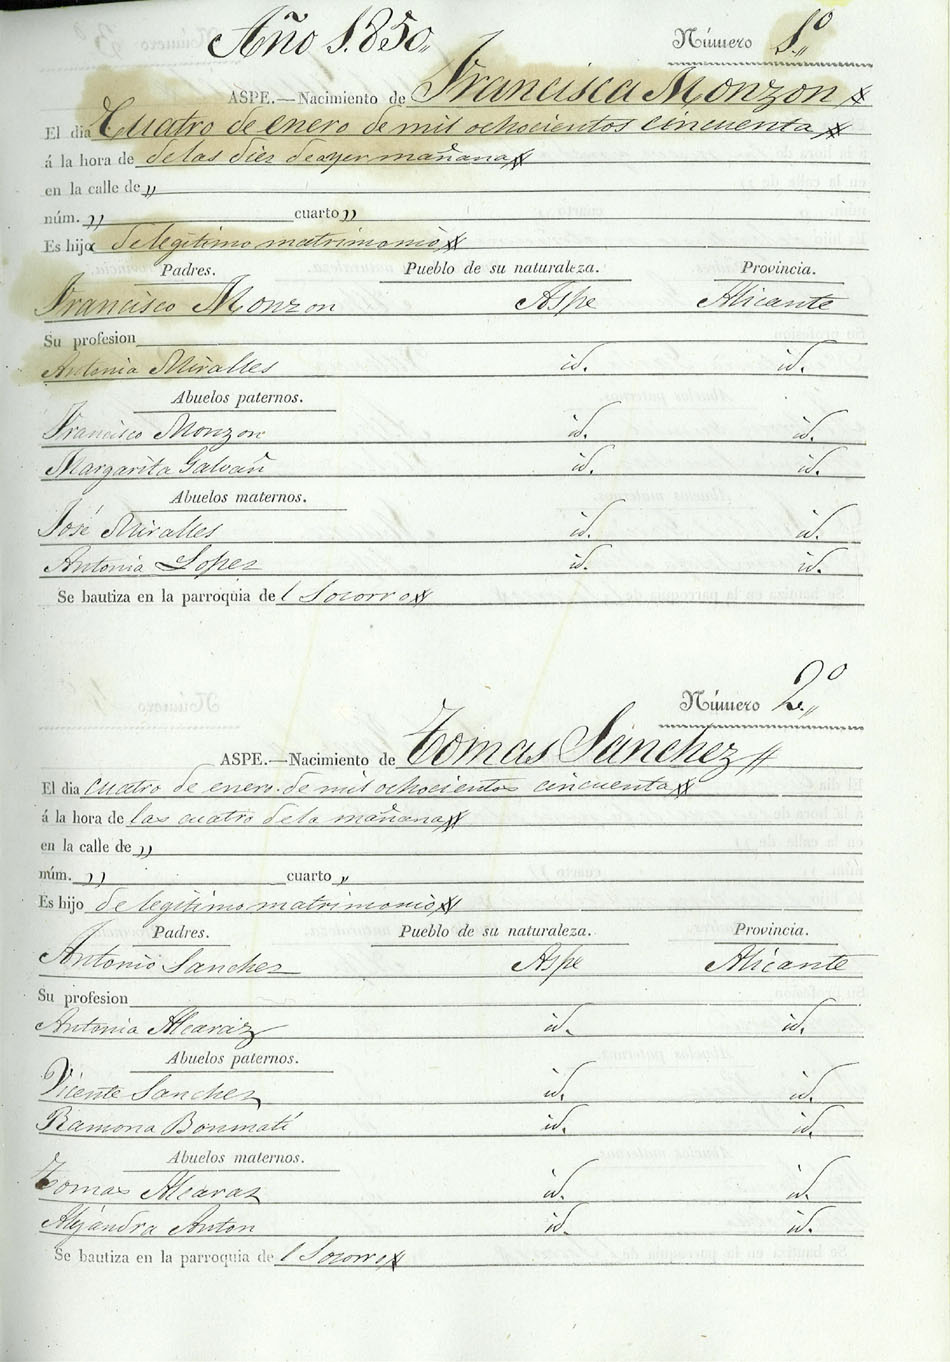 Año 1.850,, Número 1.º,,
ASPE.—Nacimiento de Francisca Monzon
El dia Cuatro de enero de mil ochocientos cincuenta
á la hora de de las diez de ayer mañana
en la calle de ,,
núm. ,, cuarto ,,
Es hija de legitimo matrimonio
Padres. Pueblo de su naturaleza. Provincia.
Francisco Monzon Aspe Alicante
Su profesion
Antonia Miralles id. id.
Abuelos paternos.
Francisco Monzon id. id.
Margarita Galvañ id. id.
Abuelos maternos.
José Miralles id. id.
Antonia Lopez id. id.
Se bautiza en la parroquia de l Socorro
Número 2.º,,
ASPE.—Nacimiento de Tomas Sanchez
El dia cuatro de enero de mil ochocientos cincuenta
á la hora de las cuatro de la mañana
en la calle de ,,
núm. ,, cuarto ,,
Es hijo de legitimo matrimonio
Padres. Pueblo de su naturaleza. Provincia.
Antonio Sanchez Aspe Alicante
Su profesion
Antonia Alcaraz id. id.
Abuelos paternos.
Vicente Sanchez id. id.
Ramona Bonmatí id. id.
Abuelos maternos.
Tomas Alcaraz id. id.
Alejandra Anton id. id.
Se bautiza en la parroquia de l Socorro